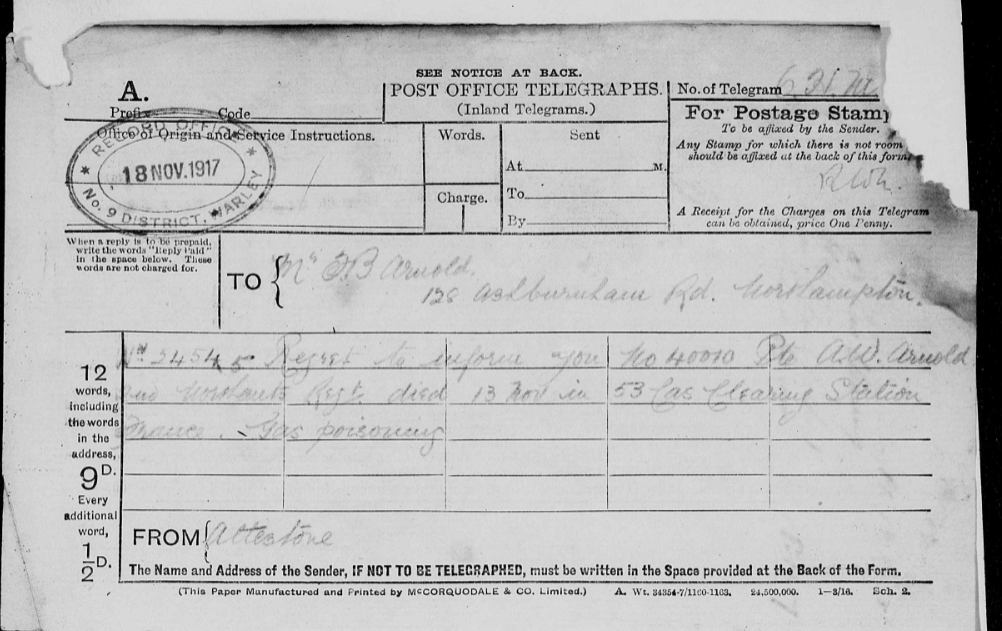 SEE NOTICE AT BACK.
A.
POST OFFICE TELEGRAPHS.
(Inland Telegrams.)
No. of Telegram
Prefix Code
Office of Origin and Service Instructions.
RECORD OFFICE
18 NOV. 1917
No. 9 DISTRICT, WARLEY
Words.
Charge.
Sent
At M.
To
By
For Postage Stamp
To be affixed by the Sender.
Any Stamp for which there is not room
should be affixed at the back of this form
A Receipt for the Charges on this Telegram
can be obtained, price One Penny.
When a reply is to be prepaid,
write the words "Reply Paid"
in the space below. These
words are not charged for.
TO { Arnold.
128 Ashburnham Rd. Northampton.
12
words,
including
the words
in the
address,
9D.
Every
additional
word,
1/2D.
Regret to inform you No 40010 Pte A.W. Arnold
Northants Regt died 13 Nov in 53 Cas Clearing Station
France. Gas poisoning
FROM { Attestone
The Name and Address of the Sender, IF NOT TO BE TELEGRAPHED, must be written in the Space provided at the Back of the Form.
(This Paper Manufactured and Printed by McCORQUODALE & CO. Limited.) A. Wt. 34354-7/1160-1103. 24,500,000. 1-3/16. Sch. 2.